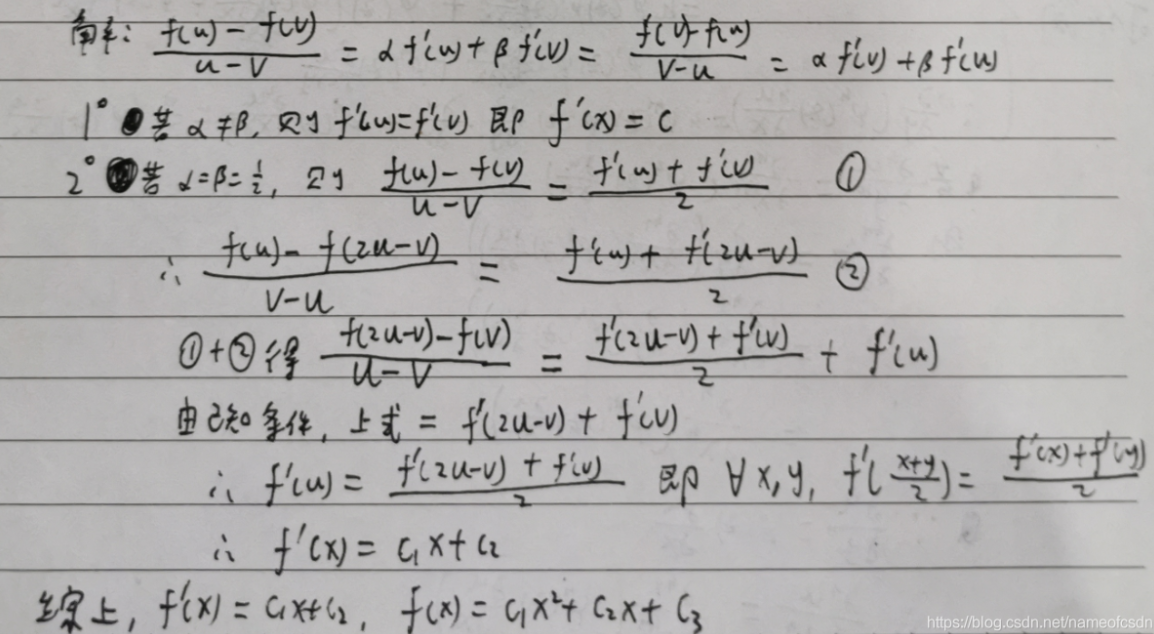 解: \frac{f(u)-f(v)}{u-v} = αf'(u)+βf'(v) = \frac{f(v)-f(u)}{v-u} = αf'(v)+βf'(u)
1° 若 α≠β, 则 f'(u)=f'(v) 即 f'(x)=C
2° 若 α=β=\frac{1}{2}, 则 \frac{f(u)-f(v)}{u-v} = \frac{f'(u)+f'(v)}{2} ①
∴ \frac{f(u)-f(2u-v)}{v-u} = \frac{f'(u)+f'(2u-v)}{2} ②
①+②得 \frac{f(2u-v)-f(v)}{u-v} = \frac{f'(2u-v)+f'(v)}{2} + f'(u)
由已知条件, 上式 = f'(2u-v)+f'(v)
∴ f'(u) = \frac{f'(2u-v)+f'(v)}{2} 即 ∀x,y, f'(\frac{x+y}{2}) = \frac{f'(x)+f'(y)}{2}
∴ f'(x) = C₁x+C₂
综上, f'(x) = C₁x+C₂, f(x) = C₁x²+C₂x+C₃
https://blog.csdn.net/nameofcsdn